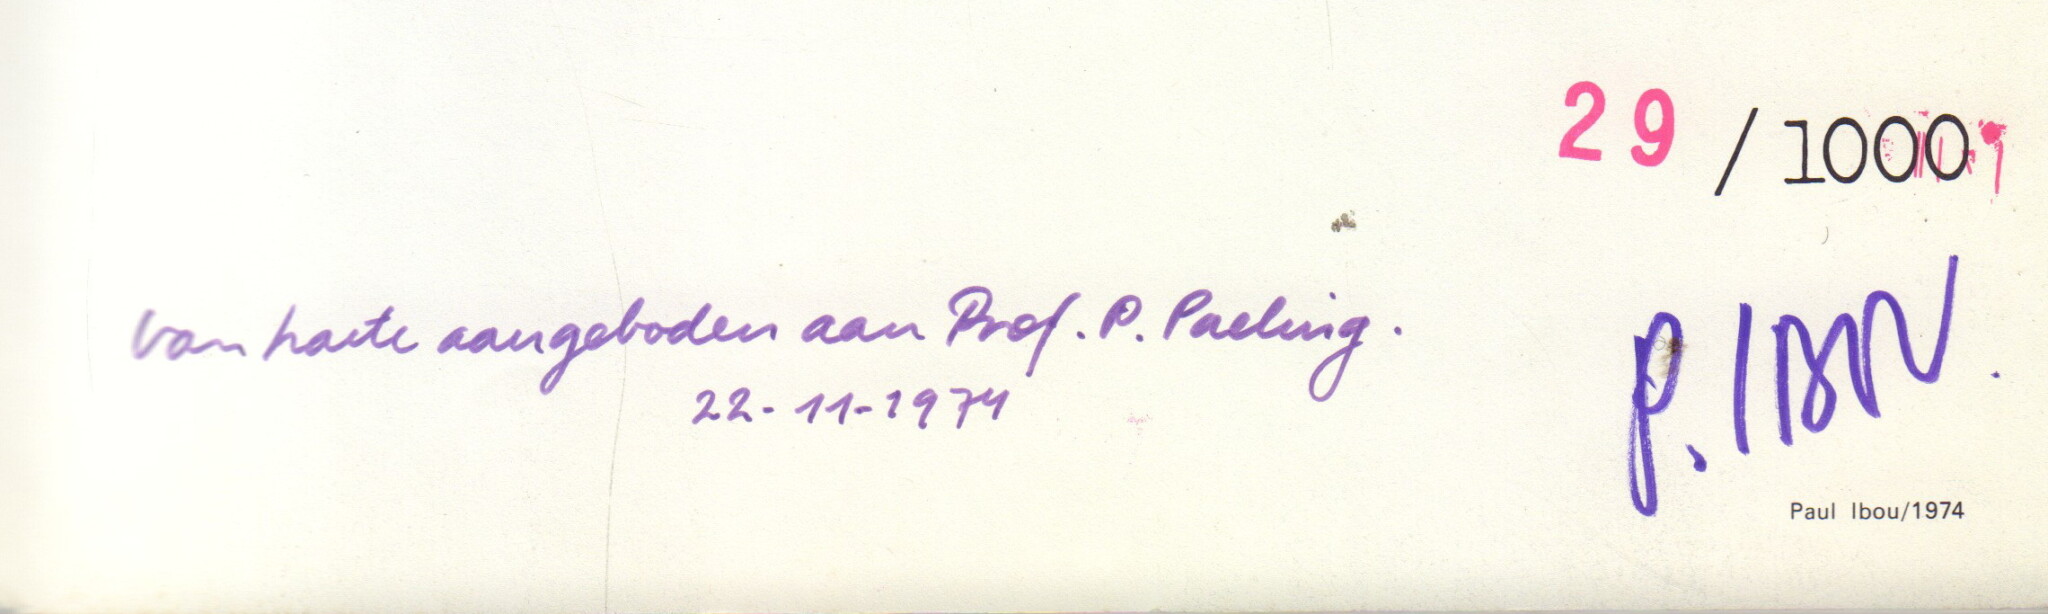 29 /1000
Van harte aangeboden aan Prof. P.
22-11-1974
P. IBOU.
Paul Ibou/1974